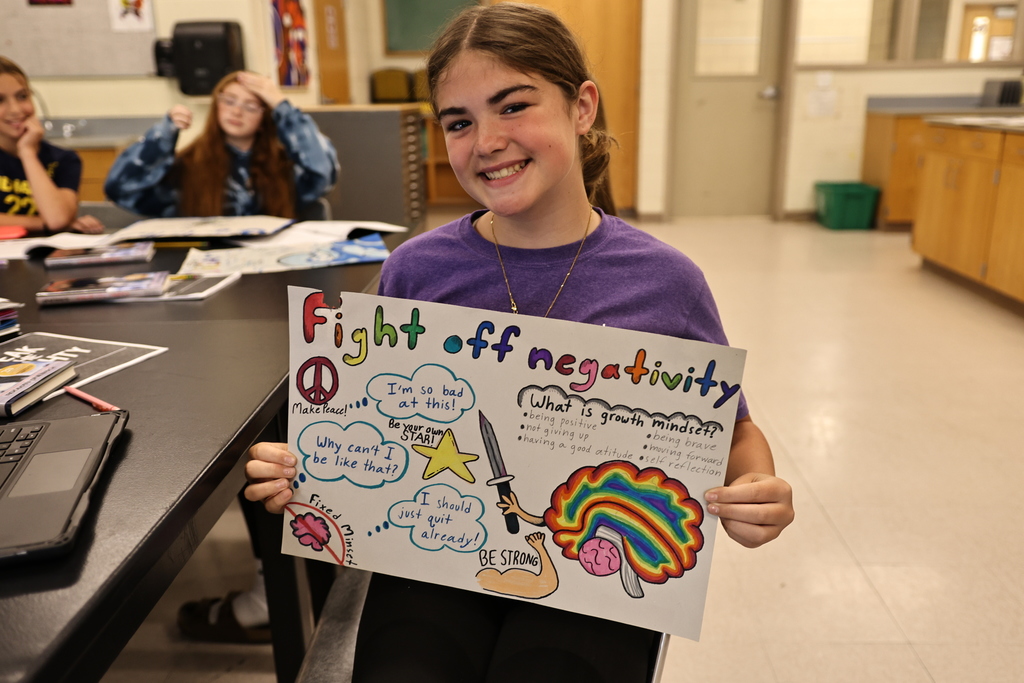 Fight off negativity
Make Peace!
I'm so bad
at this!
Be your own
STAR!
What is growth mindset?
•being positive
•not giving up
•having a good attitude
•being brave
•moving forward
•self reflection
Why can't I
be like that?
I should
just quit
already!
Fixed Minset
BE STRONG
22